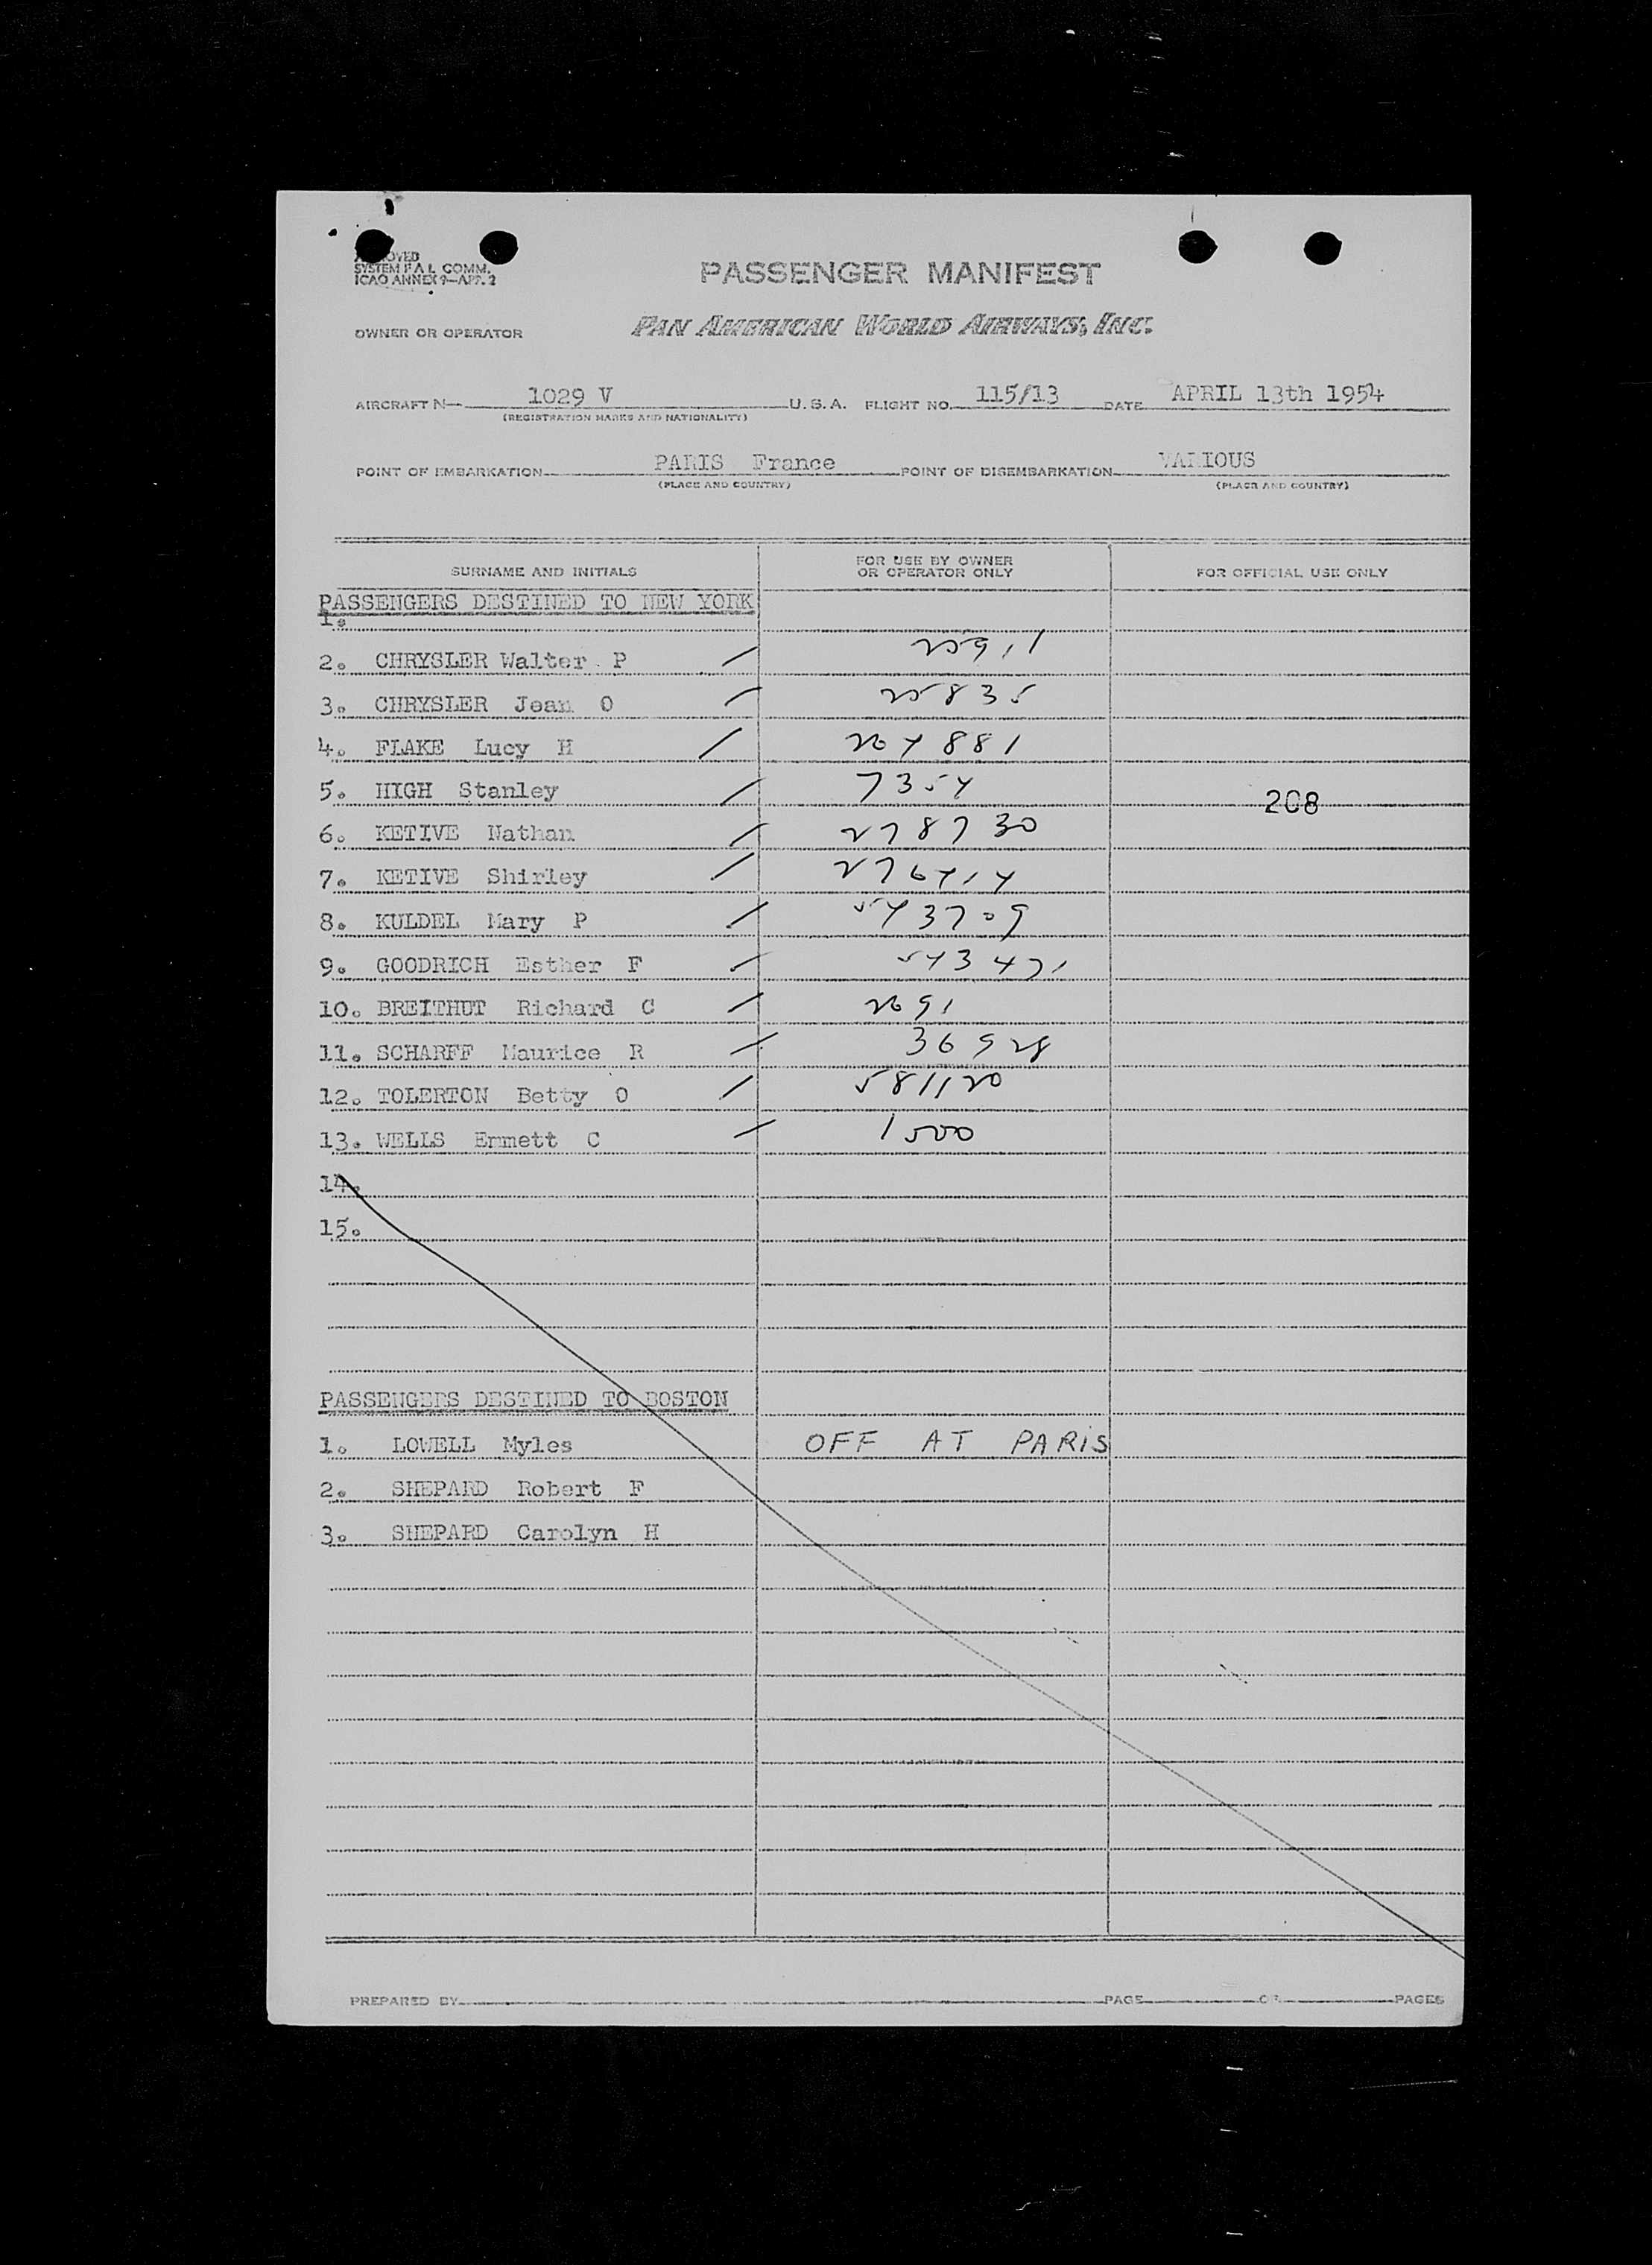 APPROVED
SYSTEM F A L COMM.
ICAO ANNEX 9—APP. 2
PASSENGER MANIFEST
OWNER OR OPERATOR PAN AMERICAN WORLD AIRWAYS, INC.
AIRCRAFT N— 1029 V U.S.A. FLIGHT NO. 115/13 DATE APRIL 13th 1954
(REGISTRATION MARKS AND NATIONALITY)
POINT OF EMBARKATION PARIS France POINT OF DISEMBARKATION VARIOUS
(PLACE AND COUNTRY) (PLACE AND COUNTRY)
SURNAME AND INITIALS FOR USE BY OWNER OR OPERATOR ONLY FOR OFFICIAL USE ONLY
PASSENGERS DESTINED TO NEW YORK
1.
2. CHRYSLER Walter P / 25911
3. CHRYSLER Jean O / 25835
4. FLAKE Lucy H / 204881
5. HIGH Stanley / 7354 208
6. KETIVE Nathan / 278730
7. KETIVE Shirley / 276414
8. KULDEL Mary P / 543709
9. GOODRICH Esther F / 543471
10. BREITHUT Richard C / 2691
11. SCHARFF Maurice R / 36928
12. TOLERTON Betty O / 581120
13. WELLS Emmett C / 1500
14.
15.
PASSENGERS DESTINED TO BOSTON
1. LOWELL Myles OFF AT PARIS
2. SHEPARD Robert F
3. SHEPARD Carolyn H
PREPARED BY PAGE OF PAGES